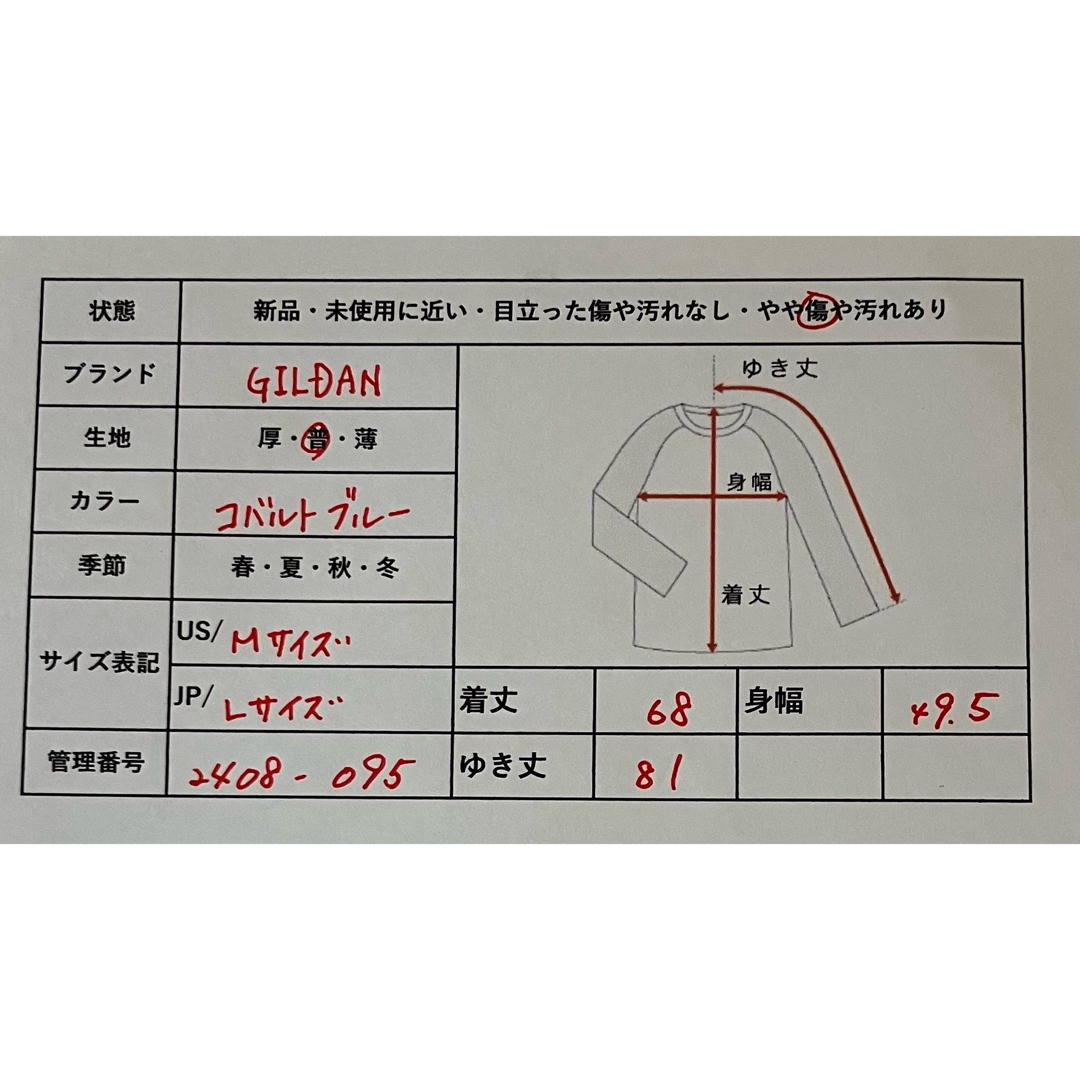 状態 新品・未使用に近い・目立った傷や汚れなし・やや傷や汚れあり
ブランド GILDAN
生地 厚・普・薄
カラー コバルトブルー
季節 春・夏・秋・冬
サイズ表記
US/ Mサイズ
JP/ Lサイズ
管理番号 2408-095
ゆき丈
身幅
着丈
着丈 68 身幅 49.5
ゆき丈 81